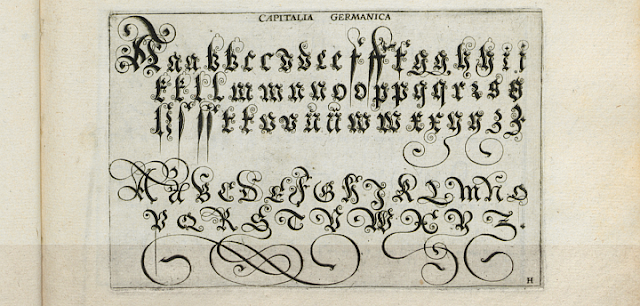 CAPITALIA GERMANICA
A a a b b c c d d e e f ff f g g h h i j
k k l l m m n n o o p p q q r z s s
ſ ſſ t t v v ü ü w w x x y y z z
A B C D E F G H I K L M N O
P Q R S T V W X Y Z.
H